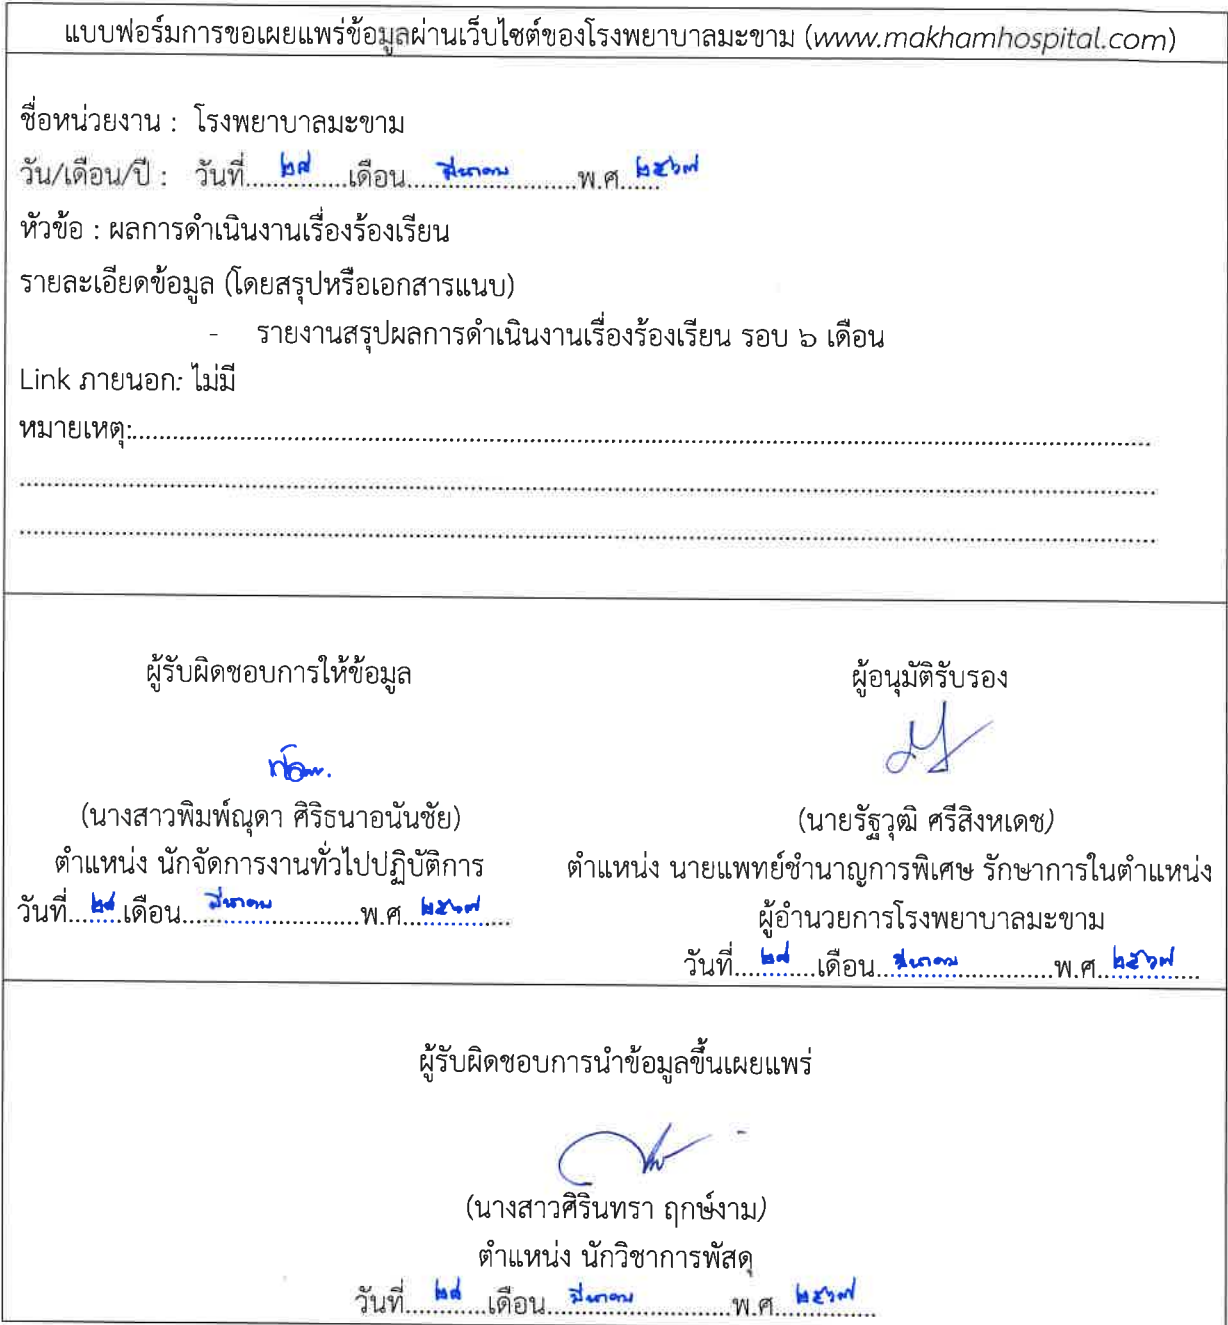 แบบฟอร์มการขอเผยแพร่ข้อมูลผ่านเว็บไซต์ของโรงพยาบาลมะขาม (www.makhamhospital.com)
ชื่อหน่วยงาน : โรงพยาบาลมะขาม
วัน/เดือน/ปี : วันที่....๒๘....เดือน....มีนาคม....พ.ศ....๒๕๖๗
หัวข้อ : ผลการดำเนินงานเรื่องร้องเรียน
รายละเอียดข้อมูล (โดยสรุปหรือเอกสารแนบ)
- รายงานสรุปผลการดำเนินงานเรื่องร้องเรียน รอบ ๖ เดือน
Link ภายนอก: ไม่มี
หมายเหตุ:....
ผู้รับผิดชอบการให้ข้อมูล
(นางสาวพิมพ์ณุดา ศิริธนาอนันชัย)
ตำแหน่ง นักจัดการงานทั่วไปปฏิบัติการ
วันที่....๒๘....เดือน....มีนาคม....พ.ศ....๒๕๖๗
ผู้อนุมัติรับรอง
(นายรัฐวุฒิ ศรีสิงหเดช)
ตำแหน่ง นายแพทย์ชำนาญการพิเศษ รักษาการในตำแหน่ง
ผู้อำนวยการโรงพยาบาลมะขาม
วันที่....๒๘....เดือน....มีนาคม....พ.ศ....๒๕๖๗
ผู้รับผิดชอบการนำข้อมูลขึ้นเผยแพร่
(นางสาวศิรินทรา ฤกษ์งาม)
ตำแหน่ง นักวิชาการพัสดุ
วันที่....๒๘....เดือน....มีนาคม....พ.ศ....๒๕๖๗